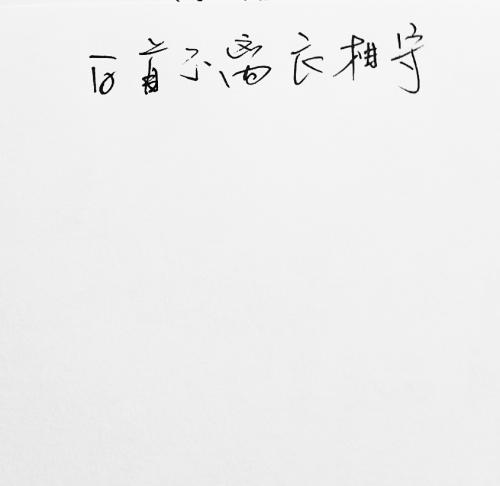 百首不离长相守